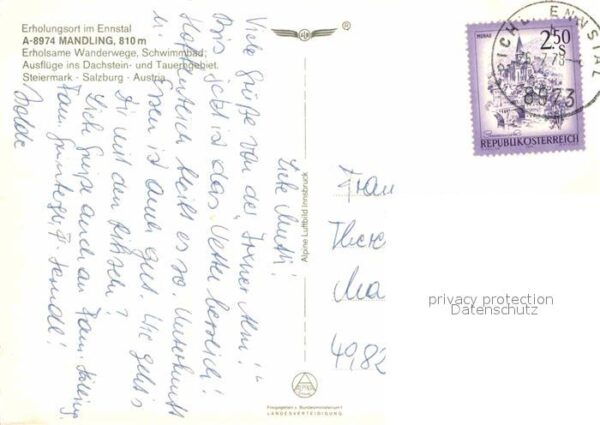 Erholungsort im Ennstal
A-8974 MANDLING, 810 m
Erholsame Wanderwege, Schwimmbad,
Ausflüge ins Dachstein- und Tauerngebiet.
Steiermark - Salzburg - Austria
Liebe Mutti!
Viele Grüße von der " Alm!"
Bis jetzt ist das Wetter herrlich!
Hoffentlich bleibt es so. Unterkunft
u. Essen ist auch gut. Wie geht's
Dir mit den ?
Liebe Grüße auch an Fam.
Fam. u. Fr.
Isolde
Alpine Luftbild Innsbruck
Freigegeben v. Bundesministerium f.
LANDESVERTEIDIGUNG
®
MURAU
2.50
S
REPUBLIK ÖSTERREICH
ENNSTAL
8973
Frau
There
Ma
4982
privacy protection
Datenschutz